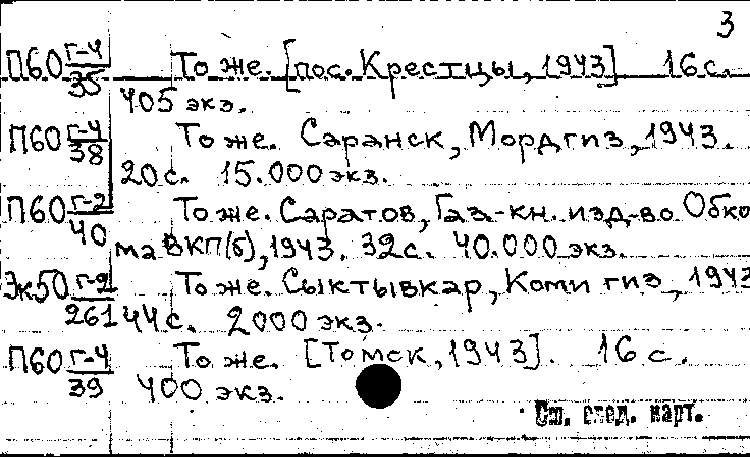 3
П60 Г-4/35 То же. [пос. Крестцы, 1943] 16 с.
405 экз.
П60 Г-4/38 То же. Саранск, Мордгиз, 1943.
20 с. 15.000 экз.
П60 Г-2/40 То же. Саратов, Газ-кн. изд-во Обко
ма ВКП(б), 1943. 32 с. 40.000 экз.
Эк50 Г-2/261 То же. Сыктывкар, Коми гиз, 1943
44 с. 2000 экз.
П60 Г-4/39 То же. [Томск, 1943]. 16 с.
400 экз.
См. след. карт.